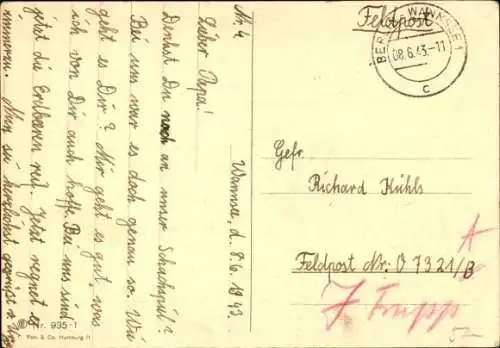 Nr. 4
Wannsee, d. 8.6.1943.
Lieber Papa!
Denkst Du noch an unser Schachspiel?
Bei uns war es doch genau so. Wie
geht es Dir? Mir geht es gut, was
ich von Dir auch hoffe. Bei uns sind
jetzt die Erdbeeren reif. Jetzt regnet es
immerzu. Nun sei herzlichst gegrüßt u.
Nr. 935-1
Feldpost
BERLIN-WANNSEE 1
08.6.43.-11
c
Gefr.
Richard Kühls
A
Feldpost Nr: 0 7321/B
7 Trupp